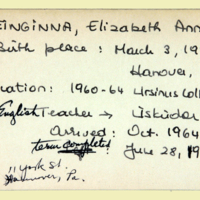 EINGINNA, Elizabeth Ann
Birth place : March 3, 19
Hanover,
ation: 1960-64 Ursinus Coll
English Teacher → Üsküdar
arrived: Oct. 1964
term completed: June 28, 19
11 York St.
Hanover, Pa.